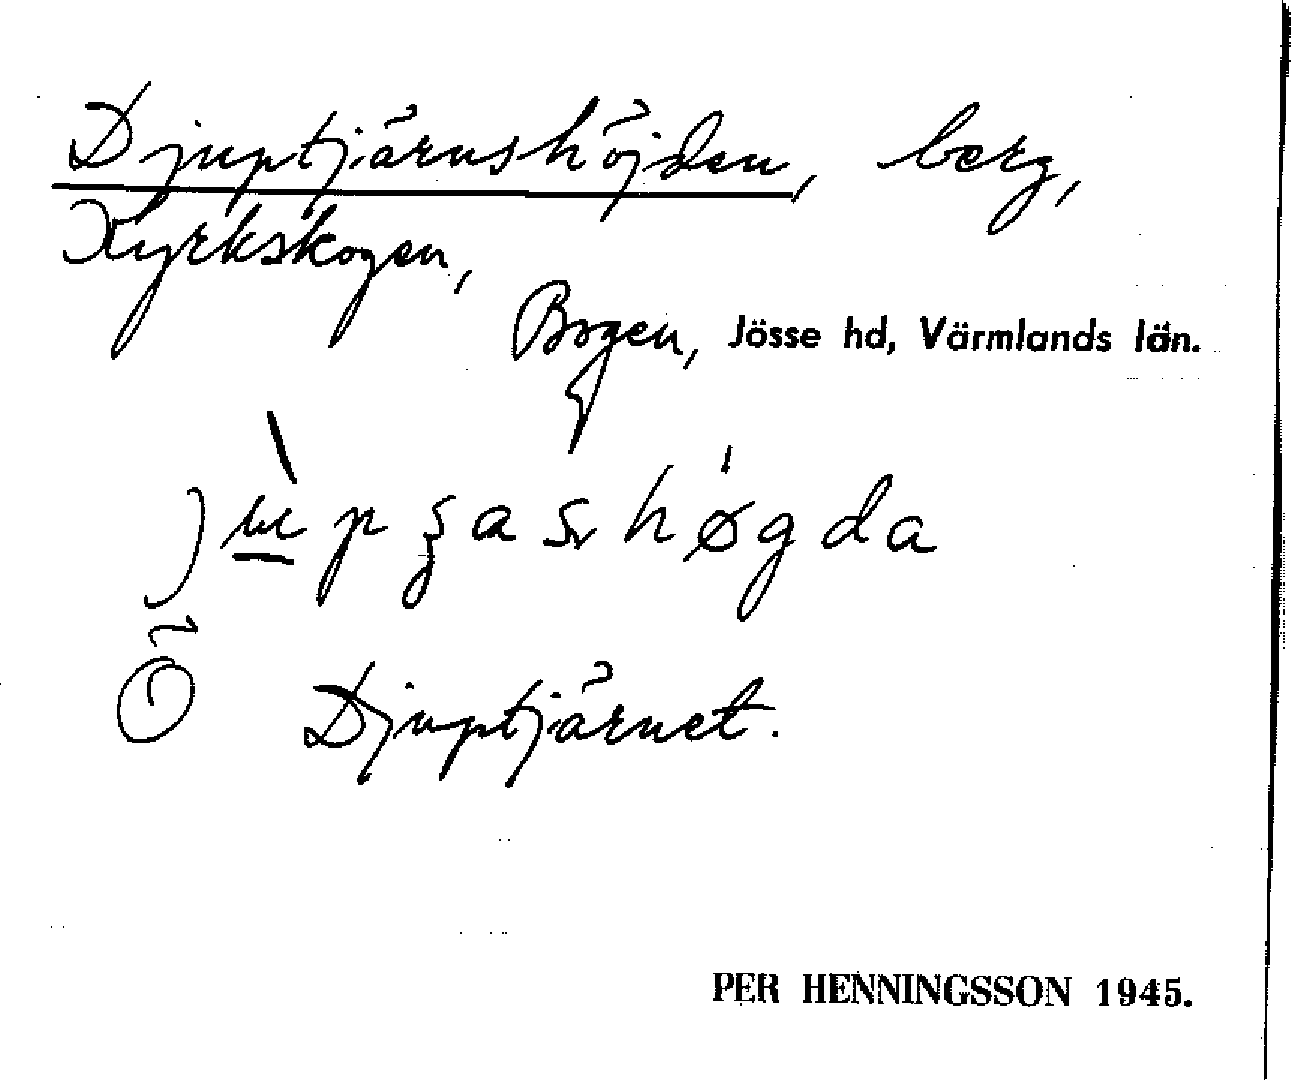 Djuptjärnshöjden, berg,
Kyrkskogen,
Bogen, Jösse hd, Värmlands län.
Djuptjärnet.
PER HENNINGSSON 1945.